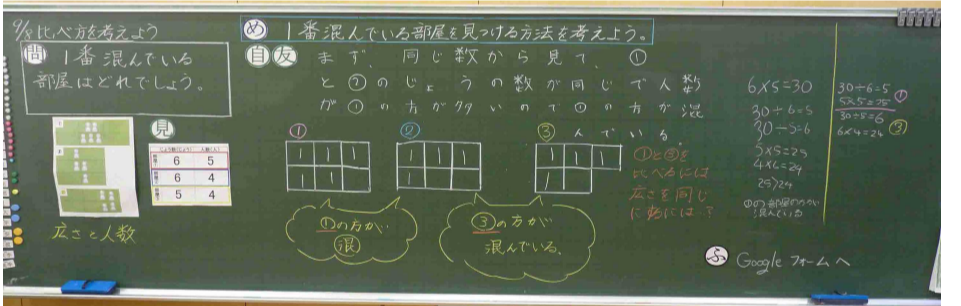 9/8 比べ方を考えよう
問 1番混んでいる
部屋はどれでしょう。
見
じょう数(じょう) 人数(人)
6 5
6 4
5 4
広さと人数
め 1番混んでいる部屋を見つける方法を考えよう。
自 友 まず、同じ数から見て、①
と②のじょうの数が同じで人数
が①の方が多いので①の方が混
んでいる。
① ② ③
1 1 1
1 1
1 1 1
1
1 1 1
1
①の方が
混
③の方が
混んでいる。
①と③を
比べるには
広さを同じ
には?
6×5=30
30÷6=5
30÷5=6
5×5=25
4×6=24
25>24
①の部屋の方が
混んでいる
30÷6=5
5×5=25 ①
30÷5=6
6×4=24 ③
ふ Googleフォームへ